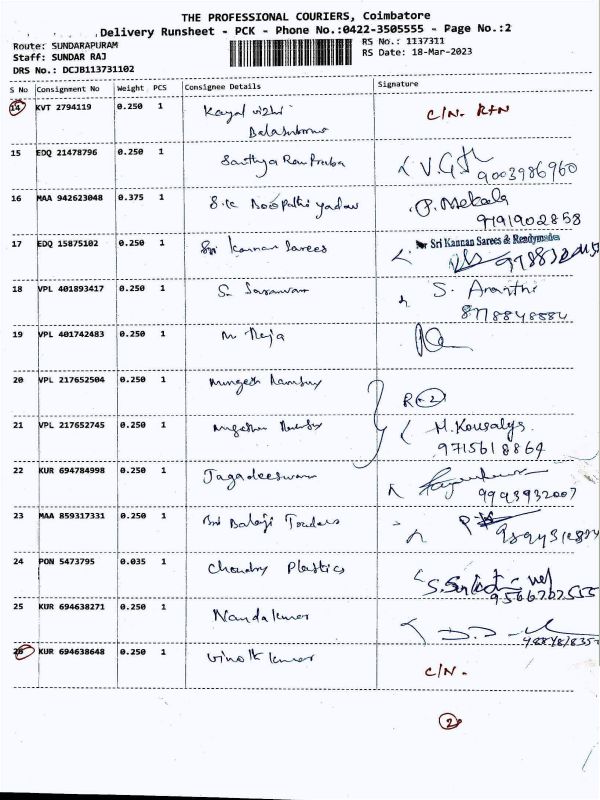 THE PROFESSIONAL COURIERS, Coimbatore
Delivery Runsheet - PCK - Phone No.:0422-3505555 - Page No.:2
Route: SUNDARAPURAM
Staff: SUNDAR RAJ
DRS No.: DCJB113731102
RS No.: 1137311
RS Date: 18-Mar-2023
S No Consignment No Weight PCS Consignee Details Signature
14 KVT 2794119 0.250 1 Kayal vizhi C/N. R+N
15 EDQ 21478796 0.250 1 9003986960
16 MAA 942623048 0.375 1 P. Mekala
9791902858
17 EDQ 15875102 0.250 1 Sri Kannan Sarees Sri Kannan Sarees & Readymades
18 VPL 401893417 0.250 1 S. Saravanan S. Ananthi
8778848884
19 VPL 401742483 0.250 1 M Raja
20 VPL 217652504 0.250 1 R-2
21 VPL 217652745 0.250 1 M. Kousalya
9715618864
22 KUR 694784998 0.250 1 Jagadeeswaran
9993932007
23 MAA 859317331 0.250 1 Sri Balaji Traders
24 PON 5473795 0.035 1 Choudry Plastics
25 KUR 694638271 0.250 1 Nandakumar
26 KUR 694638648 0.250 1 Vinoth kumar C/N.
2